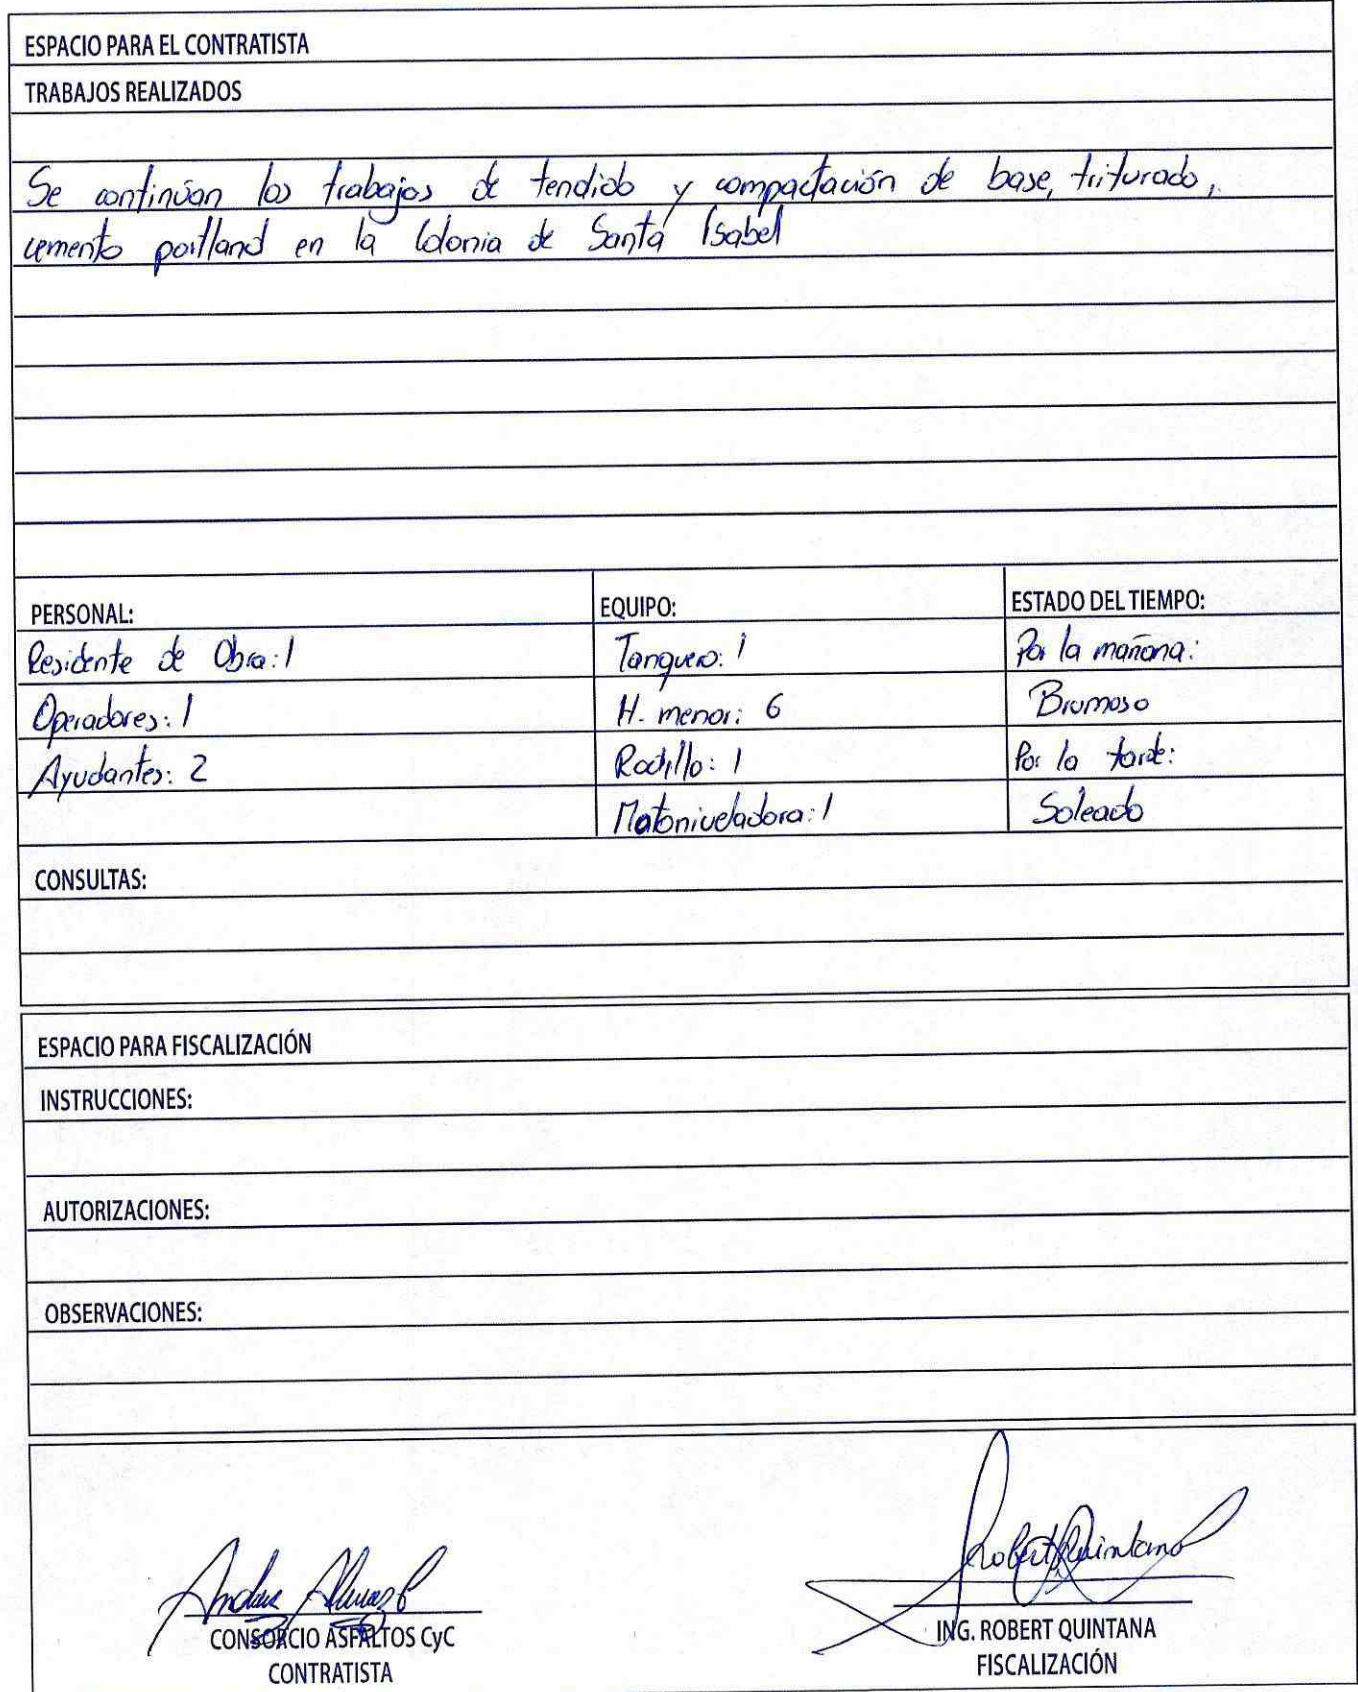 ESPACIO PARA EL CONTRATISTA
TRABAJOS REALIZADOS
Se continúan los trabajos de tendido y compactación de base, triturado,
cemento portland en la Colonia de Santa Isabel
PERSONAL: EQUIPO: ESTADO DEL TIEMPO:
Residente de Obra: 1 Tanquero: 1 Por la mañana:
Operadores: 1 H. menor: 6 Brumoso
Ayudantes: 2 Rodillo: 1 Por la tarde:
Motoniveladora: 1 Soleado
CONSULTAS:
ESPACIO PARA FISCALIZACIÓN
INSTRUCCIONES:
AUTORIZACIONES:
OBSERVACIONES:
Robert Quintana
CONSORCIO ASFALTOS CyC ING. ROBERT QUINTANA
CONTRATISTA FISCALIZACIÓN